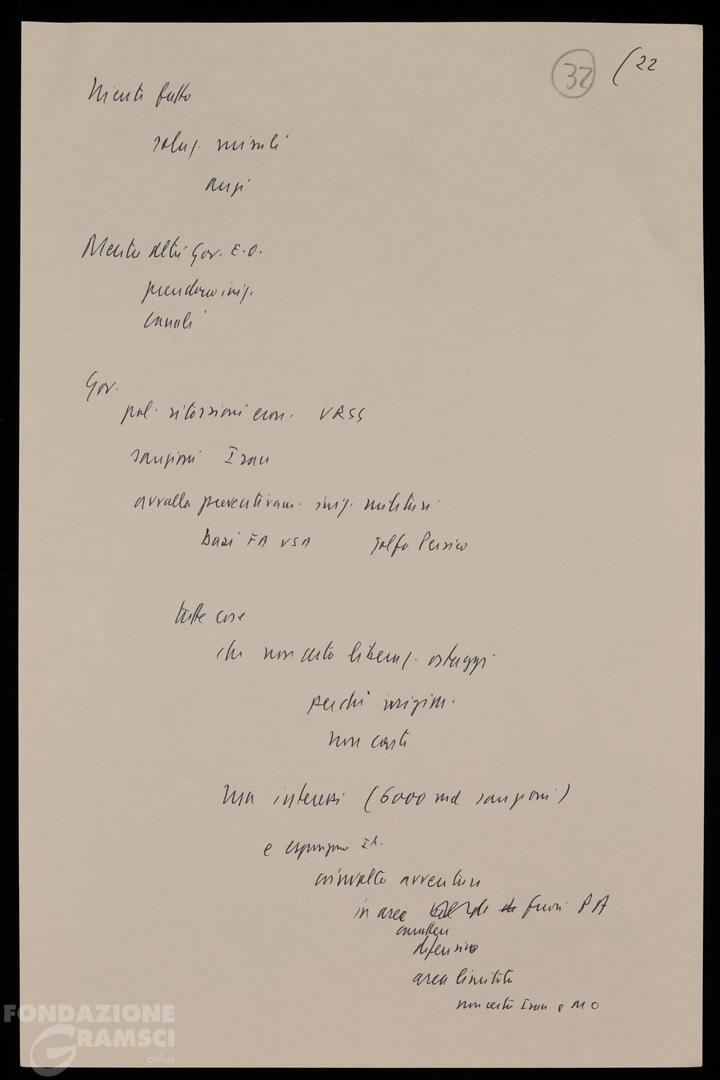 32 (22
Niente fatto
soluz. missili
anzi
Mentre altri Gov. E.O.
prendono iniz.
canali
Gov.
pol. ritorsioni econ. URSS
sanzioni Iran
avvalla preventivam. iniz. militari
Basi FA USA Golfo Persico
tutte cose
che non certo liberaz. ostaggi
perché
non certo
ma interessi (6000 md sanzioni)
e
coinvolto avventure
in area di fuori PA
carattere
difensivo
area limitata
non certo Iran e MO
FONDAZIONE
GRAMSCI
onlus